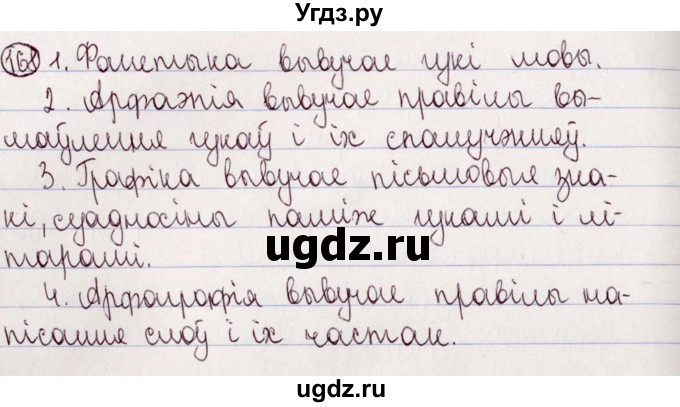 Угдз.ру
168 1. Фанетыка вывучае гукі мовы.
2. Арфаэпія вывучае правілы вы-
маўлення гукаў і іх спалучэнняў.
3. Графіка вывучае пісьмовыя зна-
кі, суадносіны паміж гукамі і лі-
тарамі.
ugdz.ru
4. Арфаграфія вывучае правілы на-
пісання слоў і іх частак.
ugdz.ru